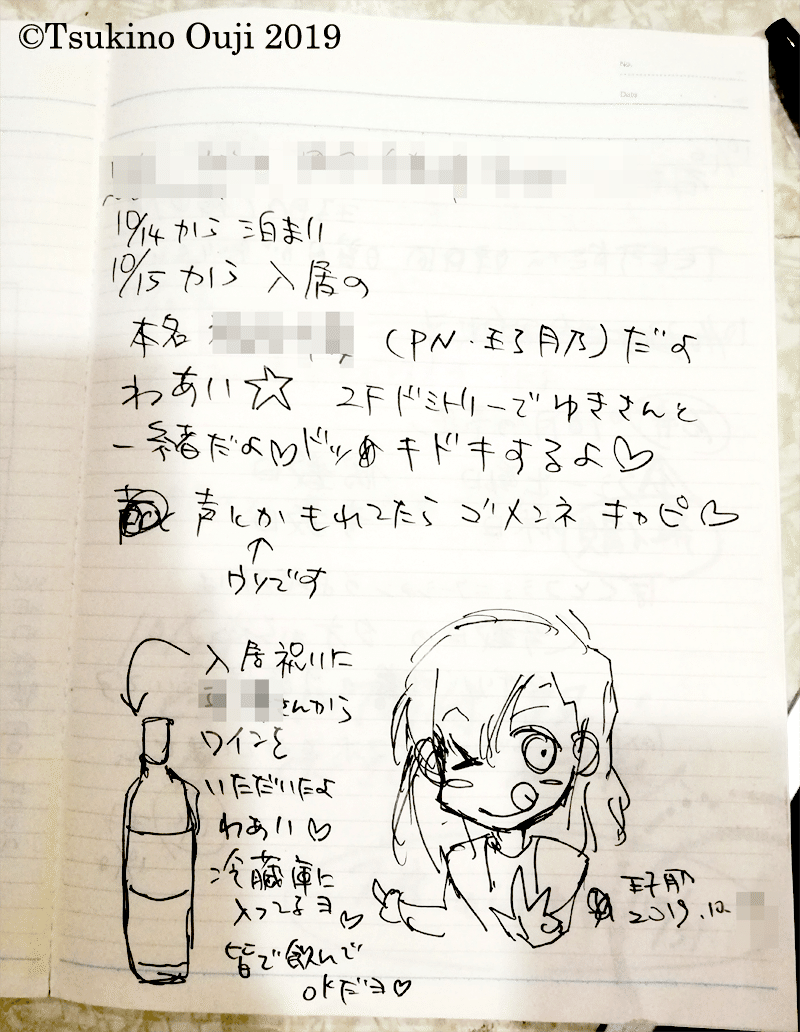 ©Tsukino Ouji 2019
No.
Date
10/14から 泊まり
10/15から 入居の
本名 (PN.王子月乃)だよ
わあい☆ 2Fドミトリーでゆきさんと
一緒だよ♡ドッキドキするよ♡
声とかもれてたら ゴメンネ キャピ♡
↑
ウソです
入居祝いに
さんから
ワインを
いただいたよ
わあい♡
冷蔵庫に
入ってるヨ♡
皆で飲んで
OKだヨ♡
王子月乃
2019.10.